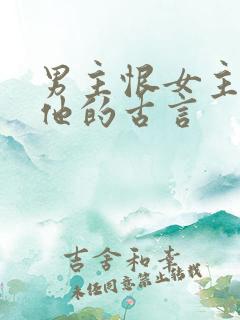 男主恨女主
他的古言
吉舍和幸
未经同意禁止转载